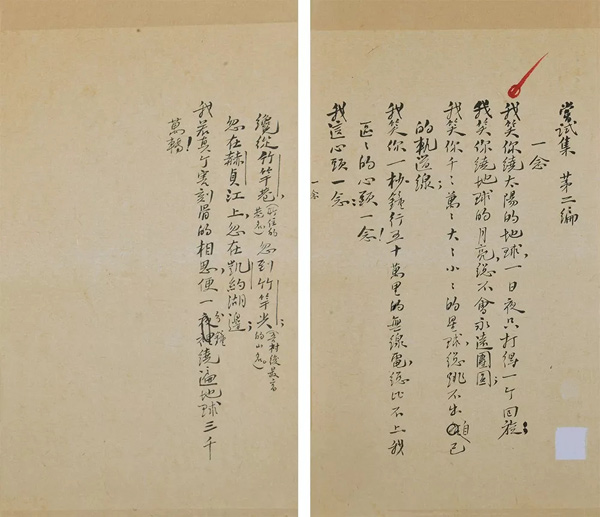 嘗試集 第二編
一念
我笑你繞太陽的地球,一日夜只打得一个回旋;
我笑你繞地球的月亮,總不會永遠團圓;
我笑你千々萬々大々小々的星球,總跳不出自己
的軌道線;
我笑你一秒鐘行五十萬里的無線電,總比不上我
區々的心頭一念!
我這心頭一念:
一念
纔從竹竿巷(所住的巷名),忽到竹竿尖(吾村後最高的山名);
忽在赫貞江上,忽在凱約湖邊;
我若真个害刻骨的相思,便一分鐘繞遍地球三千
萬轉!